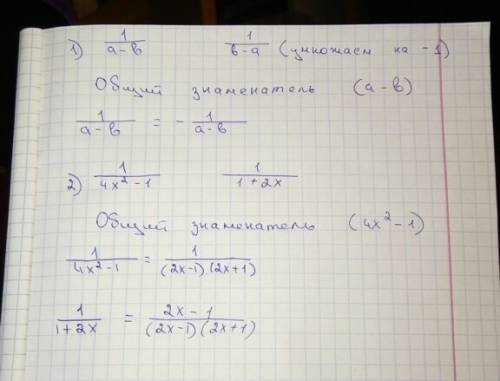 1) 1/(a-в)   1/(в-a) (умножаем на -1)
Общий знаменатель (a-в)
1/(a-в) = - 1/(a-в)
2) 1/(4x²-1)   1/(1+2x)
Общий знаменатель (4x²-1)
1/(4x²-1) = 1/((2x-1)(2x+1))
1/(1+2x) = (2x-1)/((2x-1)(2x+1))